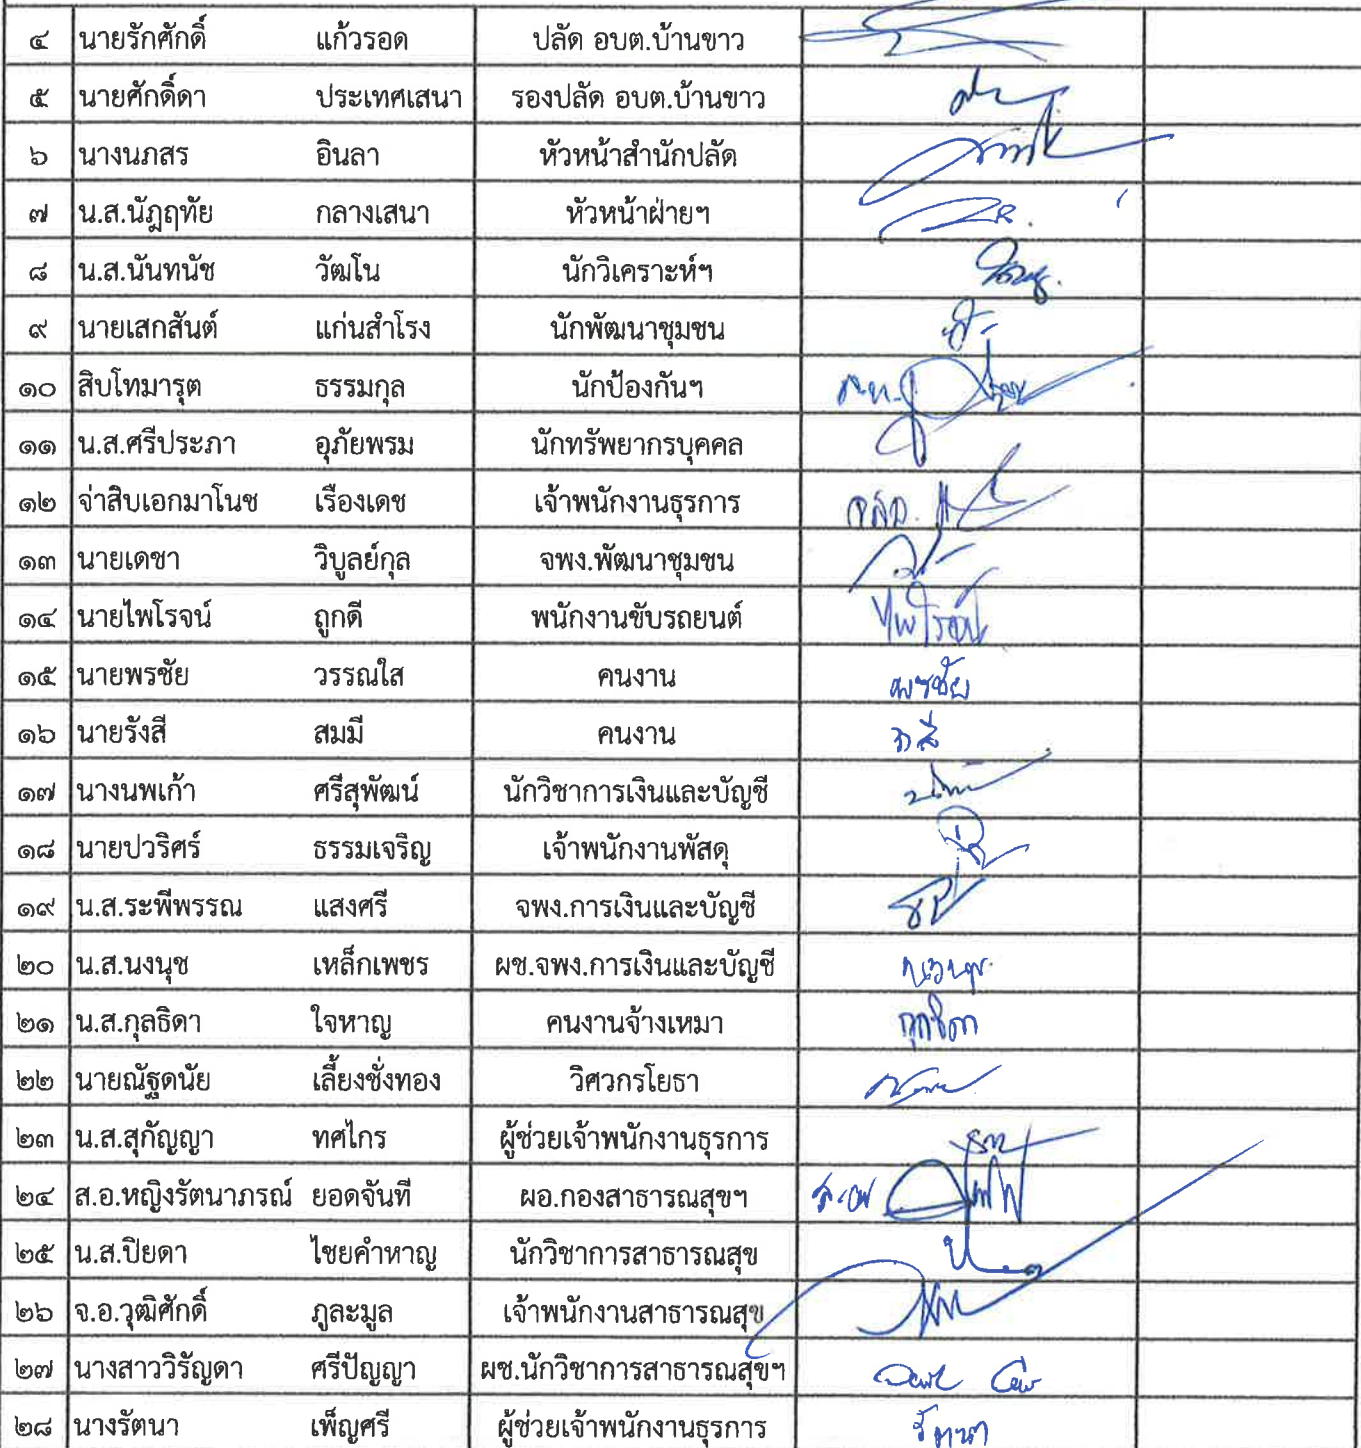 ๔ นายรักศักดิ์ แก้วรอด ปลัด อบต.บ้านขาว
๕ นายศักดิ์ดา ประเทศเสนา รองปลัด อบต.บ้านขาว
๖ นางนภสร อินลา หัวหน้าสำนักปลัด
๗ น.ส.นัฎฤทัย กลางเสนา หัวหน้าฝ่ายฯ
๘ น.ส.นันทนัช วัฒโน นักวิเคราะห์ฯ
๙ นายเสกสันต์ แก่นสำโรง นักพัฒนาชุมชน
๑๐ สิบโทมารุต ธรรมกุล นักป้องกันฯ
๑๑ น.ส.ศรีประภา อุภัยพรม นักทรัพยากรบุคคล
๑๒ จ่าสิบเอกมาโนช เรืองเดช เจ้าพนักงานธุรการ
๑๓ นายเดชา วิบูลย์กุล จพง.พัฒนาชุมชน
๑๔ นายไพโรจน์ ถูกดี พนักงานขับรถยนต์ ไพโรจน์
๑๕ นายพรชัย วรรณใส คนงาน พรชัย
๑๖ นายรังสี สมมี คนงาน
๑๗ นางนพเก้า ศรีสุพัฒน์ นักวิชาการเงินและบัญชี
๑๘ นายปวริศร์ ธรรมเจริญ เจ้าพนักงานพัสดุ
๑๙ น.ส.ระพีพรรณ แสงศรี จพง.การเงินและบัญชี
๒๐ น.ส.นงนุช เหล็กเพชร ผช.จพง.การเงินและบัญชี
๒๑ น.ส.กุลธิดา ใจหาญ คนงานจ้างเหมา กุลธิดา
๒๒ นายณัฐดนัย เลี้ยงชั่งทอง วิศวกรโยธา
๒๓ น.ส.สุกัญญา ทศไกร ผู้ช่วยเจ้าพนักงานธุรการ
๒๔ ส.อ.หญิงรัตนาภรณ์ ยอดจันที ผอ.กองสาธารณสุขฯ
๒๕ น.ส.ปิยดา ไชยคำหาญ นักวิชาการสาธารณสุข
๒๖ จ.อ.วุฒิศักดิ์ ภูละมูล เจ้าพนักงานสาธารณสุข
๒๗ นางสาววิรัญดา ศรีปัญญา ผช.นักวิชาการสาธารณสุขฯ
๒๘ นางรัตนา เพ็ญศรี ผู้ช่วยเจ้าพนักงานธุรการ รัตนา